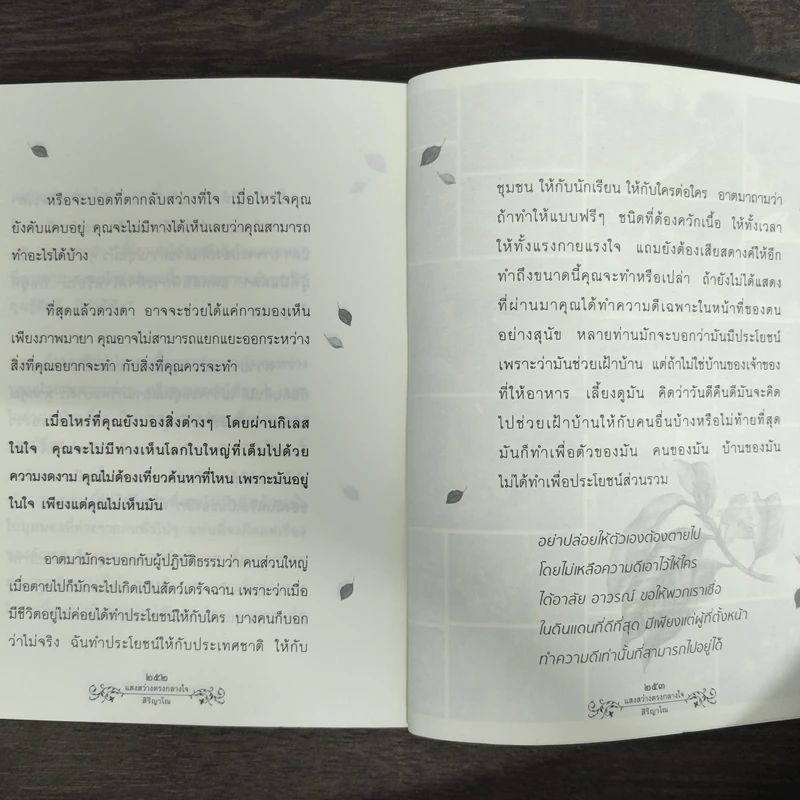 หรือจะบอดที่ตากลับสว่างที่ใจ เมื่อไหร่ใจคุณ
ยังคับแคบอยู่ คุณจะไม่มีทางได้เห็นเลยว่าคุณสามารถ
ทำอะไรได้บ้าง
ที่สุดแล้วดวงตา อาจจะช่วยได้แค่การมองเห็น
เพียงภาพมายา คุณอาจไม่สามารถแยกแยะออกระหว่าง
สิ่งที่คุณอยากจะทำ กับสิ่งที่คุณควรจะทำ
เมื่อไหร่ที่คุณยังมองสิ่งต่างๆ โดยผ่านกิเลส
ในใจ คุณจะไม่มีทางเห็นโลกใบใหญ่ที่เต็มไปด้วย
ความงดงาม คุณไม่ต้องเที่ยวค้นหาที่ไหน เพราะมันอยู่
ในใจ เพียงแต่คุณไม่เห็นมัน
อาตมามักจะบอกกับผู้ปฏิบัติธรรมว่า คนส่วนใหญ่
เมื่อตายไปก็มักจะไปเกิดเป็นสัตว์เดรัจฉาน เพราะว่าเมื่อ
มีชีวิตอยู่ไม่ค่อยได้ทำประโยชน์ให้กับใคร บางคนก็บอก
ว่าไม่จริง ฉันทำประโยชน์ให้กับประเทศชาติ ให้กับ
๒๕๒
แสงสว่างตรงกลางใจ
สิริญาโณ
ชุมชน ให้กับนักเรียน ให้กับใครต่อใคร อาตมาถามว่า
ถ้าทำให้แบบฟรีๆ ชนิดที่ต้องควักเนื้อ ให้ทั้งเวลา
ให้ทั้งแรงกายแรงใจ แถมยังต้องเสียสตางค์ให้อีก
ทำถึงขนาดนี้คุณจะทำหรือเปล่า ถ้ายังไม่ได้แสดง
ที่ผ่านมาคุณได้ทำความดีเฉพาะในหน้าที่ของตน
อย่างสุนัข หลายท่านมักจะบอกว่ามันมีประโยชน์
เพราะว่ามันช่วยเฝ้าบ้าน แต่ถ้าไม่ใช่บ้านของเจ้าของ
ที่ให้อาหาร เลี้ยงดูมัน คิดว่าวันดีคืนดีมันจะคิด
ไปช่วยเฝ้าบ้านให้กับคนอื่นบ้างหรือไม่ท้ายที่สุด
มันก็ทำเพื่อตัวของมัน คนของมัน บ้านของมัน
ไม่ได้ทำเพื่อประโยชน์ส่วนรวม
อย่าปล่อยให้ตัวเองต้องตายไป
โดยไม่เหลือความดีเอาไว้ให้ใคร
ได้อาลัย อาวรณ์ ขอให้พวกเราเชื่อ
ในดินแดนที่ดีที่สุด มีเพียงแต่ผู้ที่ตั้งหน้า
ทำความดีเท่านั้นที่สามารถไปอยู่ได้
๒๕๓
แสงสว่างตรงกลางใจ
สิริญาโณ